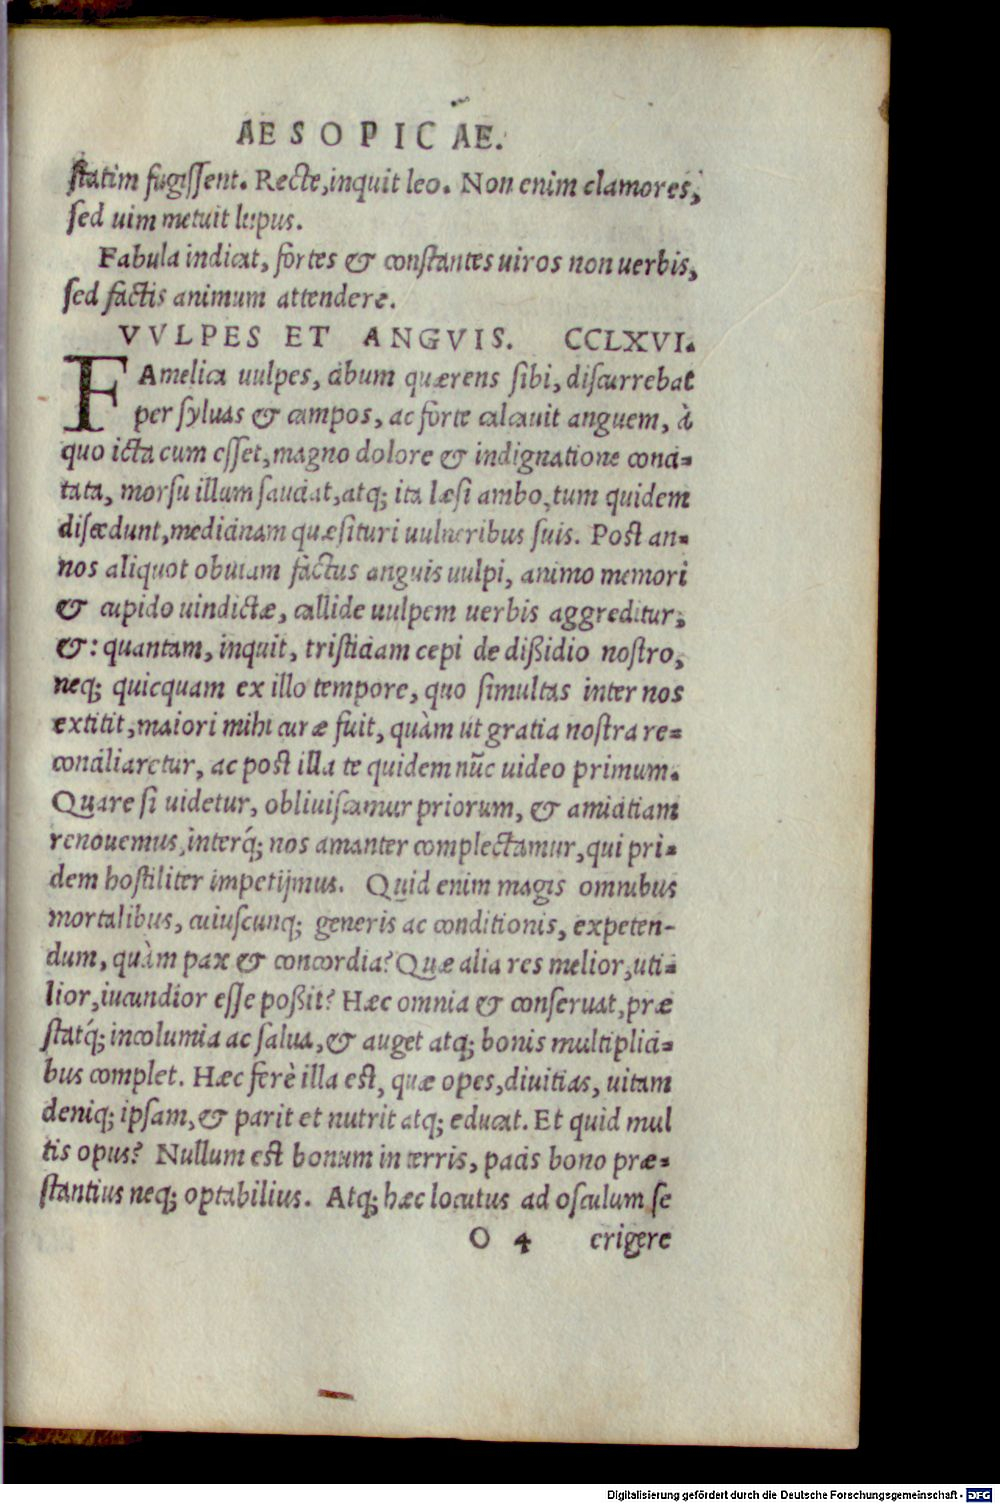 AESOPICAE.
statim fugissent. Recte, inquit leo. Non enim clamores,
sed uim metuit lupus.
Fabula indicat, fortes & constantes uiros non uerbis,
sed factis animum attendere.
VVLPES ET ANGVIS. CCLXVI.
FAmelica uulpes, cibum quærens sibi, discurrebat
per syluas & campos, ac forte calcauit anguem, à
quo icta cum esset, magno dolore & indignatione conci=
tata, morsu illum sauciat, atq; ita læsi ambo, tum quidem
discedunt, medicinam quæsituri uulneribus suis. Post an=
nos aliquot obuiam factus anguis uulpi, animo memori
& cupido uindictæ, callide uulpem uerbis aggreditur,
&: quantam, inquit, tristiciam cepi de dißidio nostro,
neq; quicquam ex illo tempore, quo simultas inter nos
extitit, maiori mihi curæ fuit, quàm ut gratia nostra re=
conciliaretur, ac post illa te quidem nũc uideo primum.
Quare si uidetur, obliuiscamur priorum, & amicitiam
renouemus, interq́; nos amanter complectamur, qui pri=
dem hostiliter impetijmus. Quid enim magis omnibus
mortalibus, cuiuscunq; generis ac conditionis, expeten-
dum, quàm pax & concordia? Quæ alia res melior, uti=
lior, iucundior esse poßit? Hæc omnia & conseruat, præ
statq́; incolumia ac salua, & auget atq; bonis multiplici=
bus complet. Hæc ferè illa est, quæ opes, diuitias, uitam
deniq; ipsam, & parit et nutrit atq; educat. Et quid mul
tis opus? Nullum est bonum in terris, pacis bono præ=
stantius neq; optabilius. Atq; hæc locutus ad osculum se
O 4 erigere
Digitalisierung gefördert durch die Deutsche Forschungsgemeinschaft - DFG